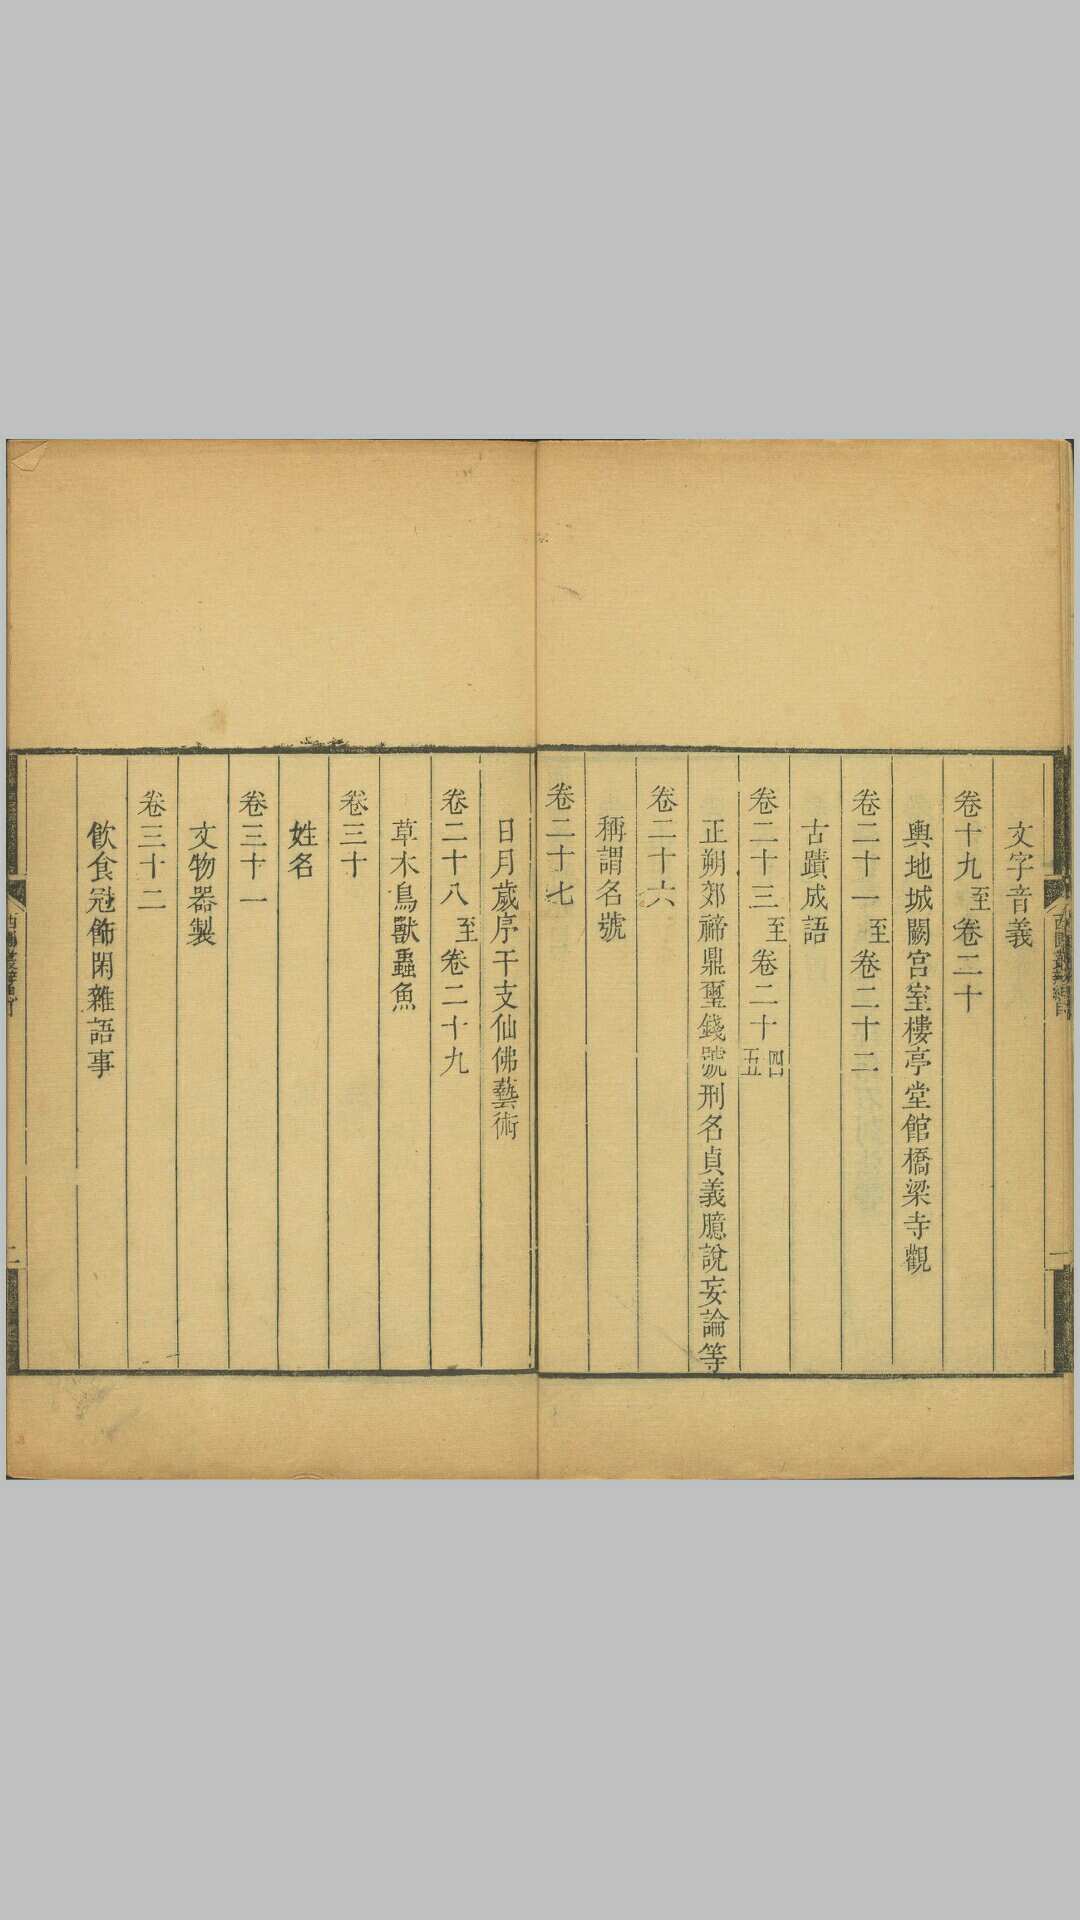 文字音義
卷十九至卷二十
輿地城闕宮室樓亭堂館橋梁寺觀
卷二十一至卷二十二
古蹟成語
卷二十三至卷二十四五
正朔郊禘鼎璽錢號刑名貞義臆說妄論等
卷二十六
稱謂名號
卷二十七
日月歲序干支仙佛藝術
卷二十八至卷二十九
草木鳥獸蟲魚
卷三十
姓名
卷三十一
文物器製
卷三十二
飲食冠飾閑雜語事
二